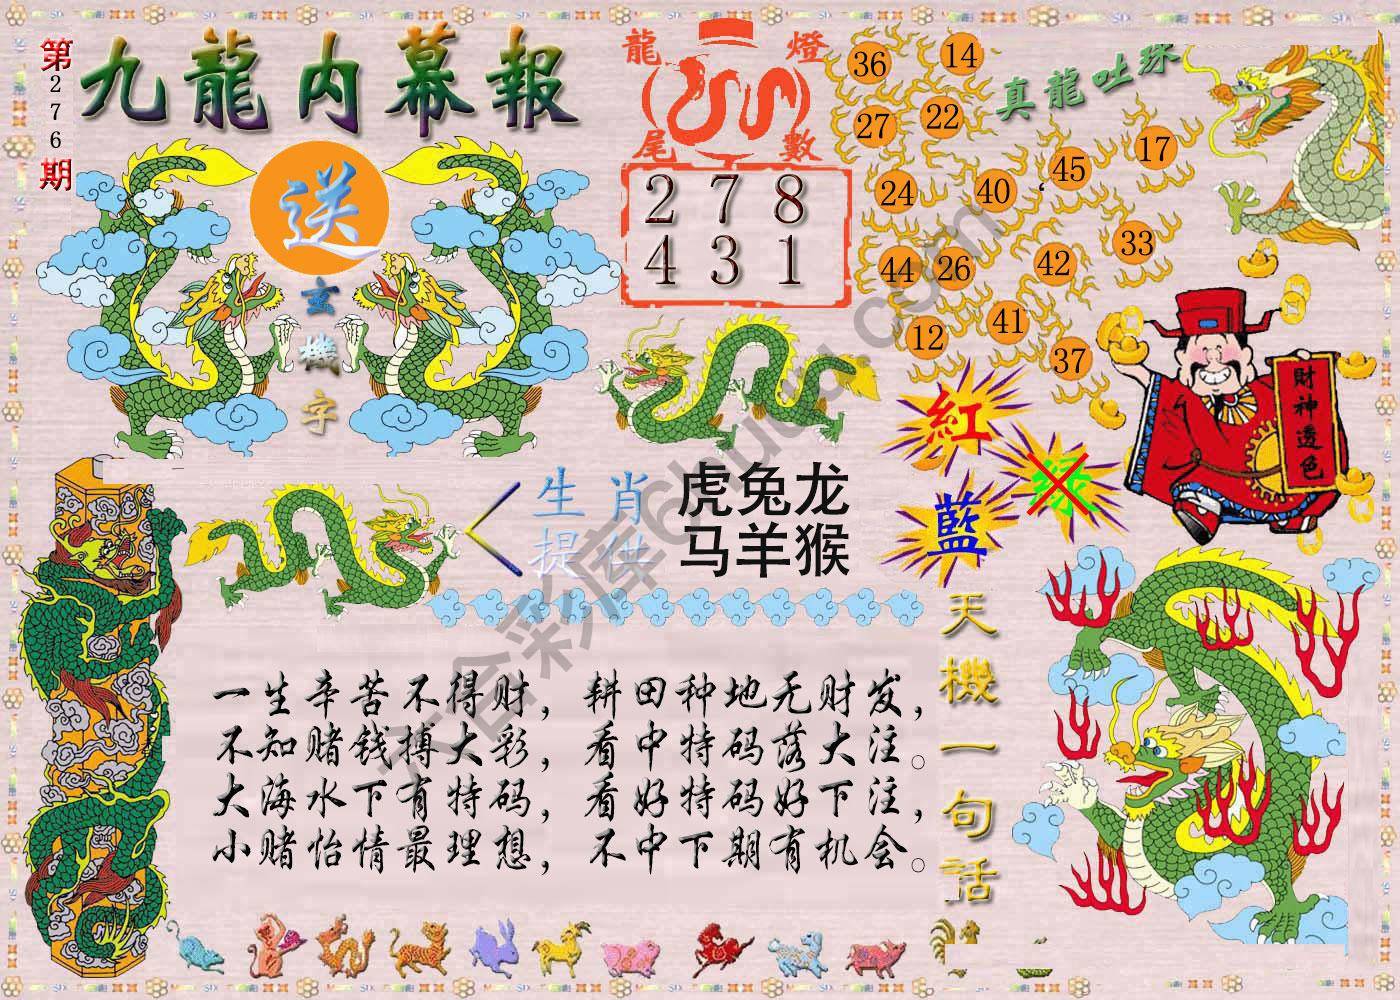 第276期
九龍内幕報
送
玄機字
龍燈尾數
2 7 8
4 3 1
真龍吐珠
36 14
27 22
45 17
24 40
33
44 26 42
12 41
37
財神透色
紅
绿
藍
生肖
提供
虎兔龙
马羊猴
天機一句话
一生辛苦不得财，耕田种地无财发，
不知赌钱搏大彩，看中特码落大注。
大海水下有特码，看好特码好下注，
小赌怡情最理想，不中下期有机会。
六合彩库6huuu.com